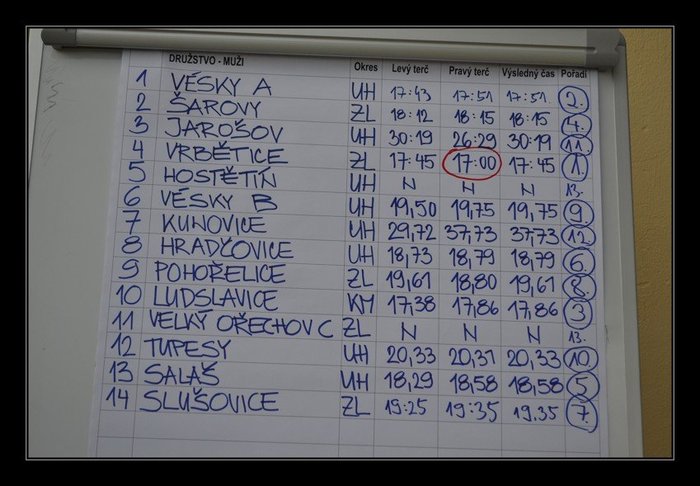 DRUŽSTVO - MUŽI Okres Levý terč Pravý terč Výsledný čas Pořadí
1 VÉSKY A UH 17:43 17:51 17:51 2.
2 ŠAROVY ZL 18:12 18:15 18:15 4.
3 JAROŠOV UH 30:19 26:29 30:19 11.
4 VRBĚTICE ZL 17:45 17:00 17:45 1.
5 HOSTĚTÍN UH N N N 13.
6 VÉSKY B UH 19,50 19,75 19,75 9.
7 KUNOVICE UH 29,72 37,73 37,73 12.
8 HRADČOVICE UH 18,73 18,79 18,79 6.
9 POHOŘELICE ZL 19,61 18,80 19,61 8.
10 LUDSLAVICE KM 17,38 17,86 17,86 3.
11 VELKÝ OŘECHOV C ZL N N N 13.
12 TUPESY UH 20,33 20,31 20,33 10.
13 SALAŠ UH 18,29 18,58 18,58 5.
14 SLUŠOVICE ZL 19:25 19:35 19,35 7.